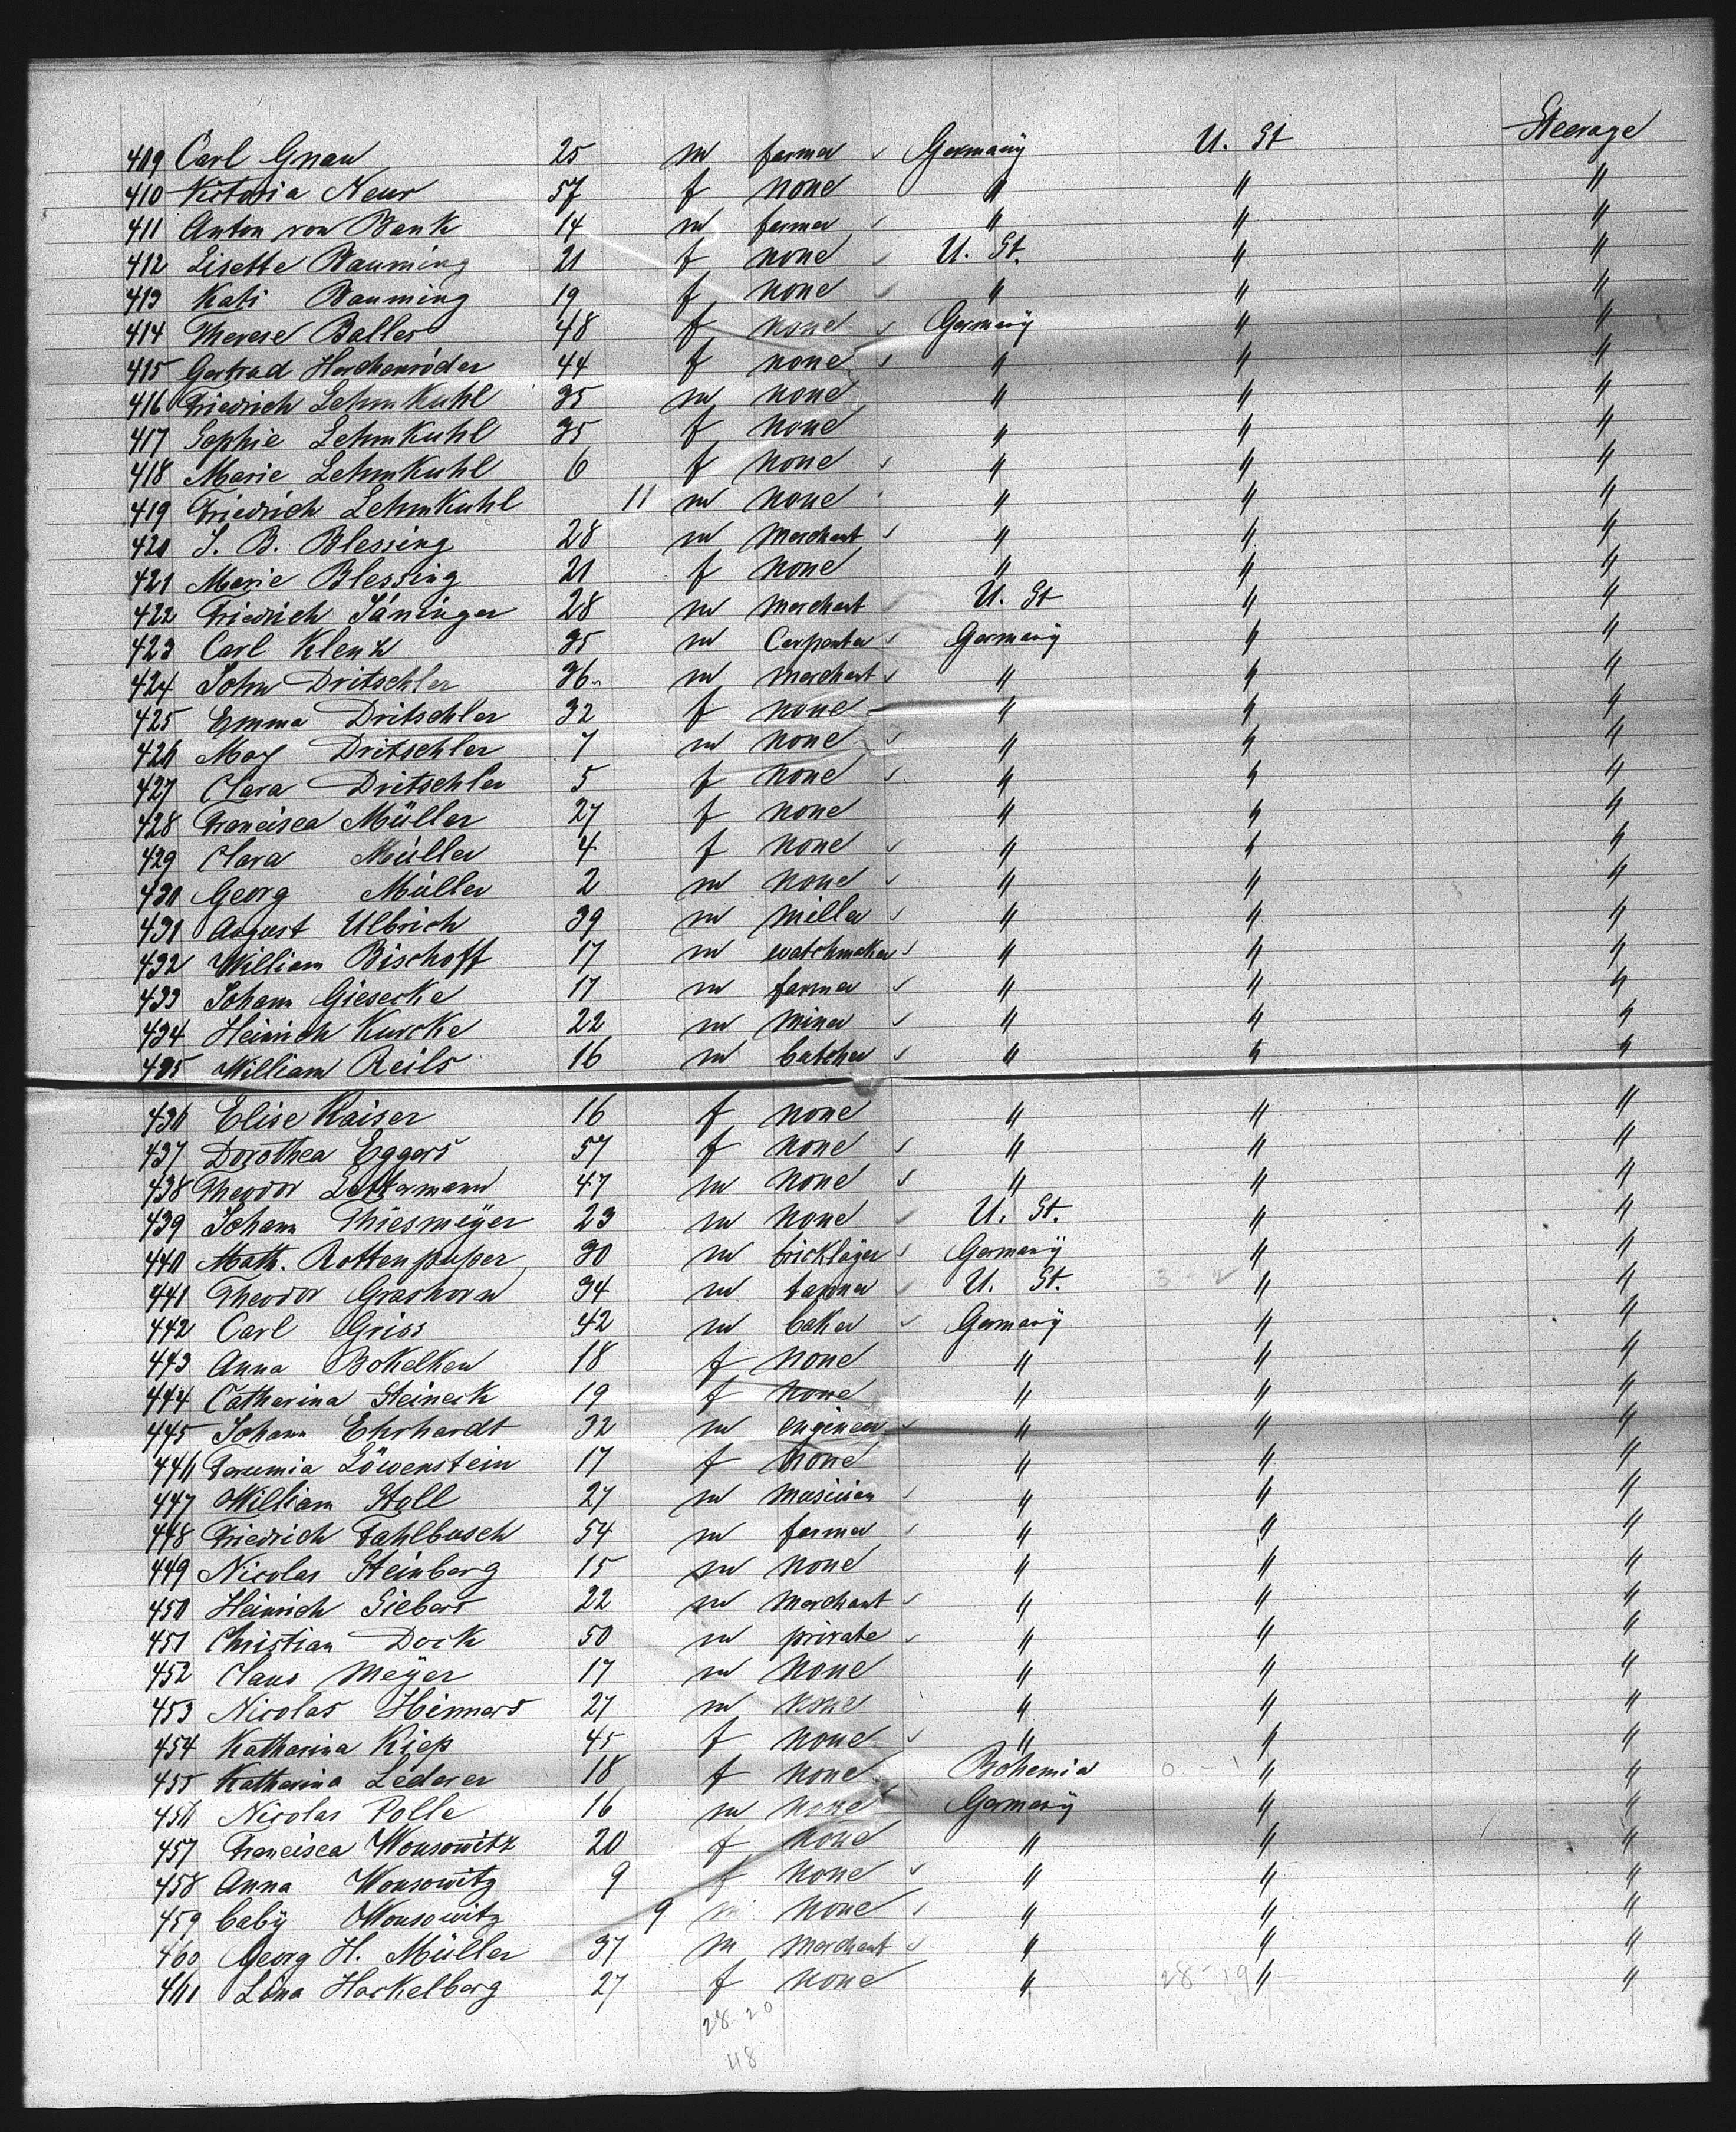 409 Carl Gnau 25 m farmer Germany U. St Steerage
410 Victoria Neur 57 f none " " "
411 Anton von Bank 14 m farmer " " "
412 Lisette Bauming 21 f none U. St. " "
413 Kati Bauming 19 f none " " "
414 Therese Balles 48 f none Germany " "
415 Gertrud Herchenröder 44 f none " " "
416 Friedrich Lehmkuhl 35 m none " " "
417 Sophie Lehmkuhl 35 f none " " "
418 Marie Lehmkuhl 6 f none " " "
419 Friedrich Lehmkuhl 11 m none " " "
420 J. B. Blessing 28 m merchant " " "
421 Marie Blessing 21 f none " " "
422 Friedrich Säninger 28 m merchant U. St " "
423 Carl Klenk 35 m Carpenter Germany " "
424 John Dritschler 36 m merchant " " "
425 Emma Dritschler 32 f none " " "
426 Max Dritschler 7 m none " " "
427 Clara Dritschler 5 f none " " "
428 Francisca Müller 27 f none " " "
429 Clara Müller 4 f none " " "
430 Georg Müller 2 m none " " "
431 August Ulbrich 39 m miller " " "
432 William Bischoff 17 m watchmaker " " "
433 Johann Giesecke 17 m farmer " " "
434 Heinrich Kurcke 22 m miner " " "
435 William Reils 16 m butcher " " "
436 Elise Kaiser 16 f none " " "
437 Dorothea Eggers 57 f none " " "
438 Theodor 47 m none " " "
439 Johann Thiesmeyer 23 m none U. St. " "
440 Math. Rottenpusser 30 m bricklayer Germany " "
441 Theodor Grashorn 34 m farmer U. St. 3 - 2 " "
442 Carl Griss 42 m baker Germany " "
443 Anna Bokelken 18 f none " " "
444 Catharina Steineck 19 f none " " "
445 Johann Ehrhardt 32 m engineer " " "
446 Löwenstein 17 f none " " "
447 William Stoll 27 m musician " " "
448 Friedrich Fahlbusch 54 m farmer " " "
449 Nicolas Steinberg 15 m none " " "
450 Heinrich Siebert 22 m merchant " " "
451 Christian Dock 50 m private " " "
452 Claus Meyer 17 m none " " "
453 Nicolas Hinners 27 m none " " "
454 Katharina Kiep 45 f none " " "
455 Katharina Lederer 18 f none Bohemia 0 - 1 " "
456 Nicolas Polle 16 m none Germany " "
457 Francisca Wonsowitz 20 f none " " "
458 Anna Wonsowitz 9 f none " " "
459 baby Wonsowitz 9 m none " " "
460 Georg H. Müller 37 m merchant " " "
461 Lina Hackelberg 27 f none " 28 - 19 " "
28 20
48